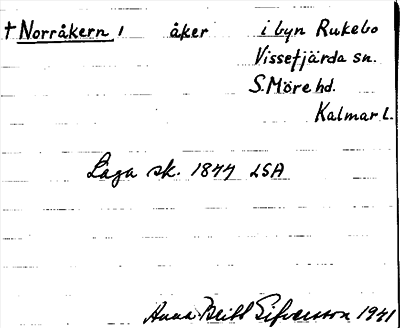 † Norråkern, åker i byn Rukebo
Vissefjärda sn.
S. Möre hd.
Kalmar l.
Laga sk. 1877 LSA
Anna-Britt Sifversson 1941